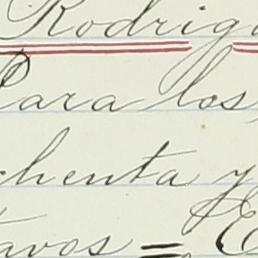 Rodrigu
Para los
chenta y
tavos = E